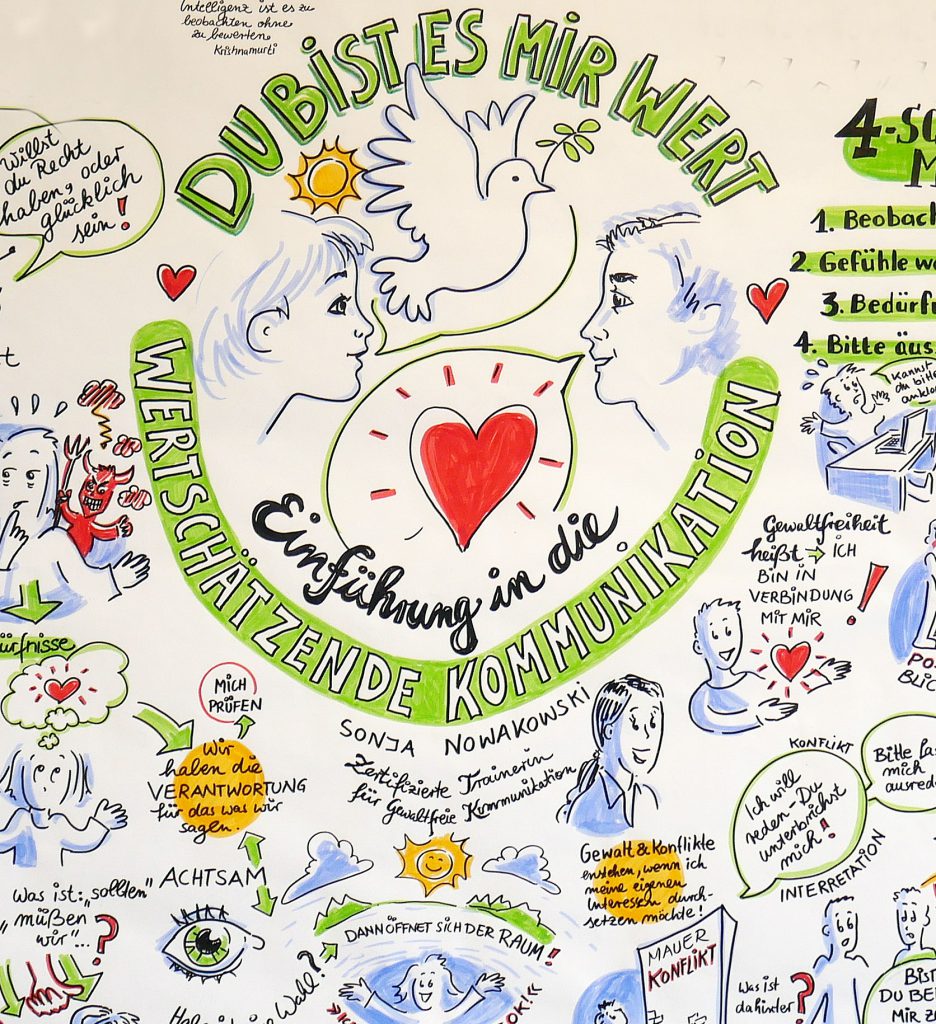 Intelligenz ist es zu
beobachten ohne
zu bewerten
Krishnamurti
DU BIST ES MIR WERT
willst
du Recht
haben, oder
glücklich
sein!
4-
1. Beobach
2. Gefühle
3. Bedürf
4. Bitte äus
Kannst
du bitte
Einführung in die
WERTSCHÄTZENDE KOMMUNIKATION
SONJA NOWAKOWSKI
Zertifizierte Trainerin
für Gewaltfreie Kommunikation
Gewaltfreiheit
heißt → ICH
BIN IN
VERBINDUNG
MIT MIR
!
ürfnisse
MICH
PRÜFEN
Wir
haben die
VERANTWORTUNG
für das was wir
sagen.
ACHTSAM
Was ist: „sollten"
„müßen
wir"...?
DANN ÖFFNET SICH DER RAUM!
Gewalt & Konflikte
entstehen, wenn ich
meine eigenen
Interessen durch-
setzen möchte!
KONFLIKT
Ich will
reden - Du
unterbrichst
mich!
Bitte
mich
ausred
INTERRETATION
PO
BLIC
MAUER
KONFLIKT
Was ist
dahinter?
BIST
DU BE
MIR